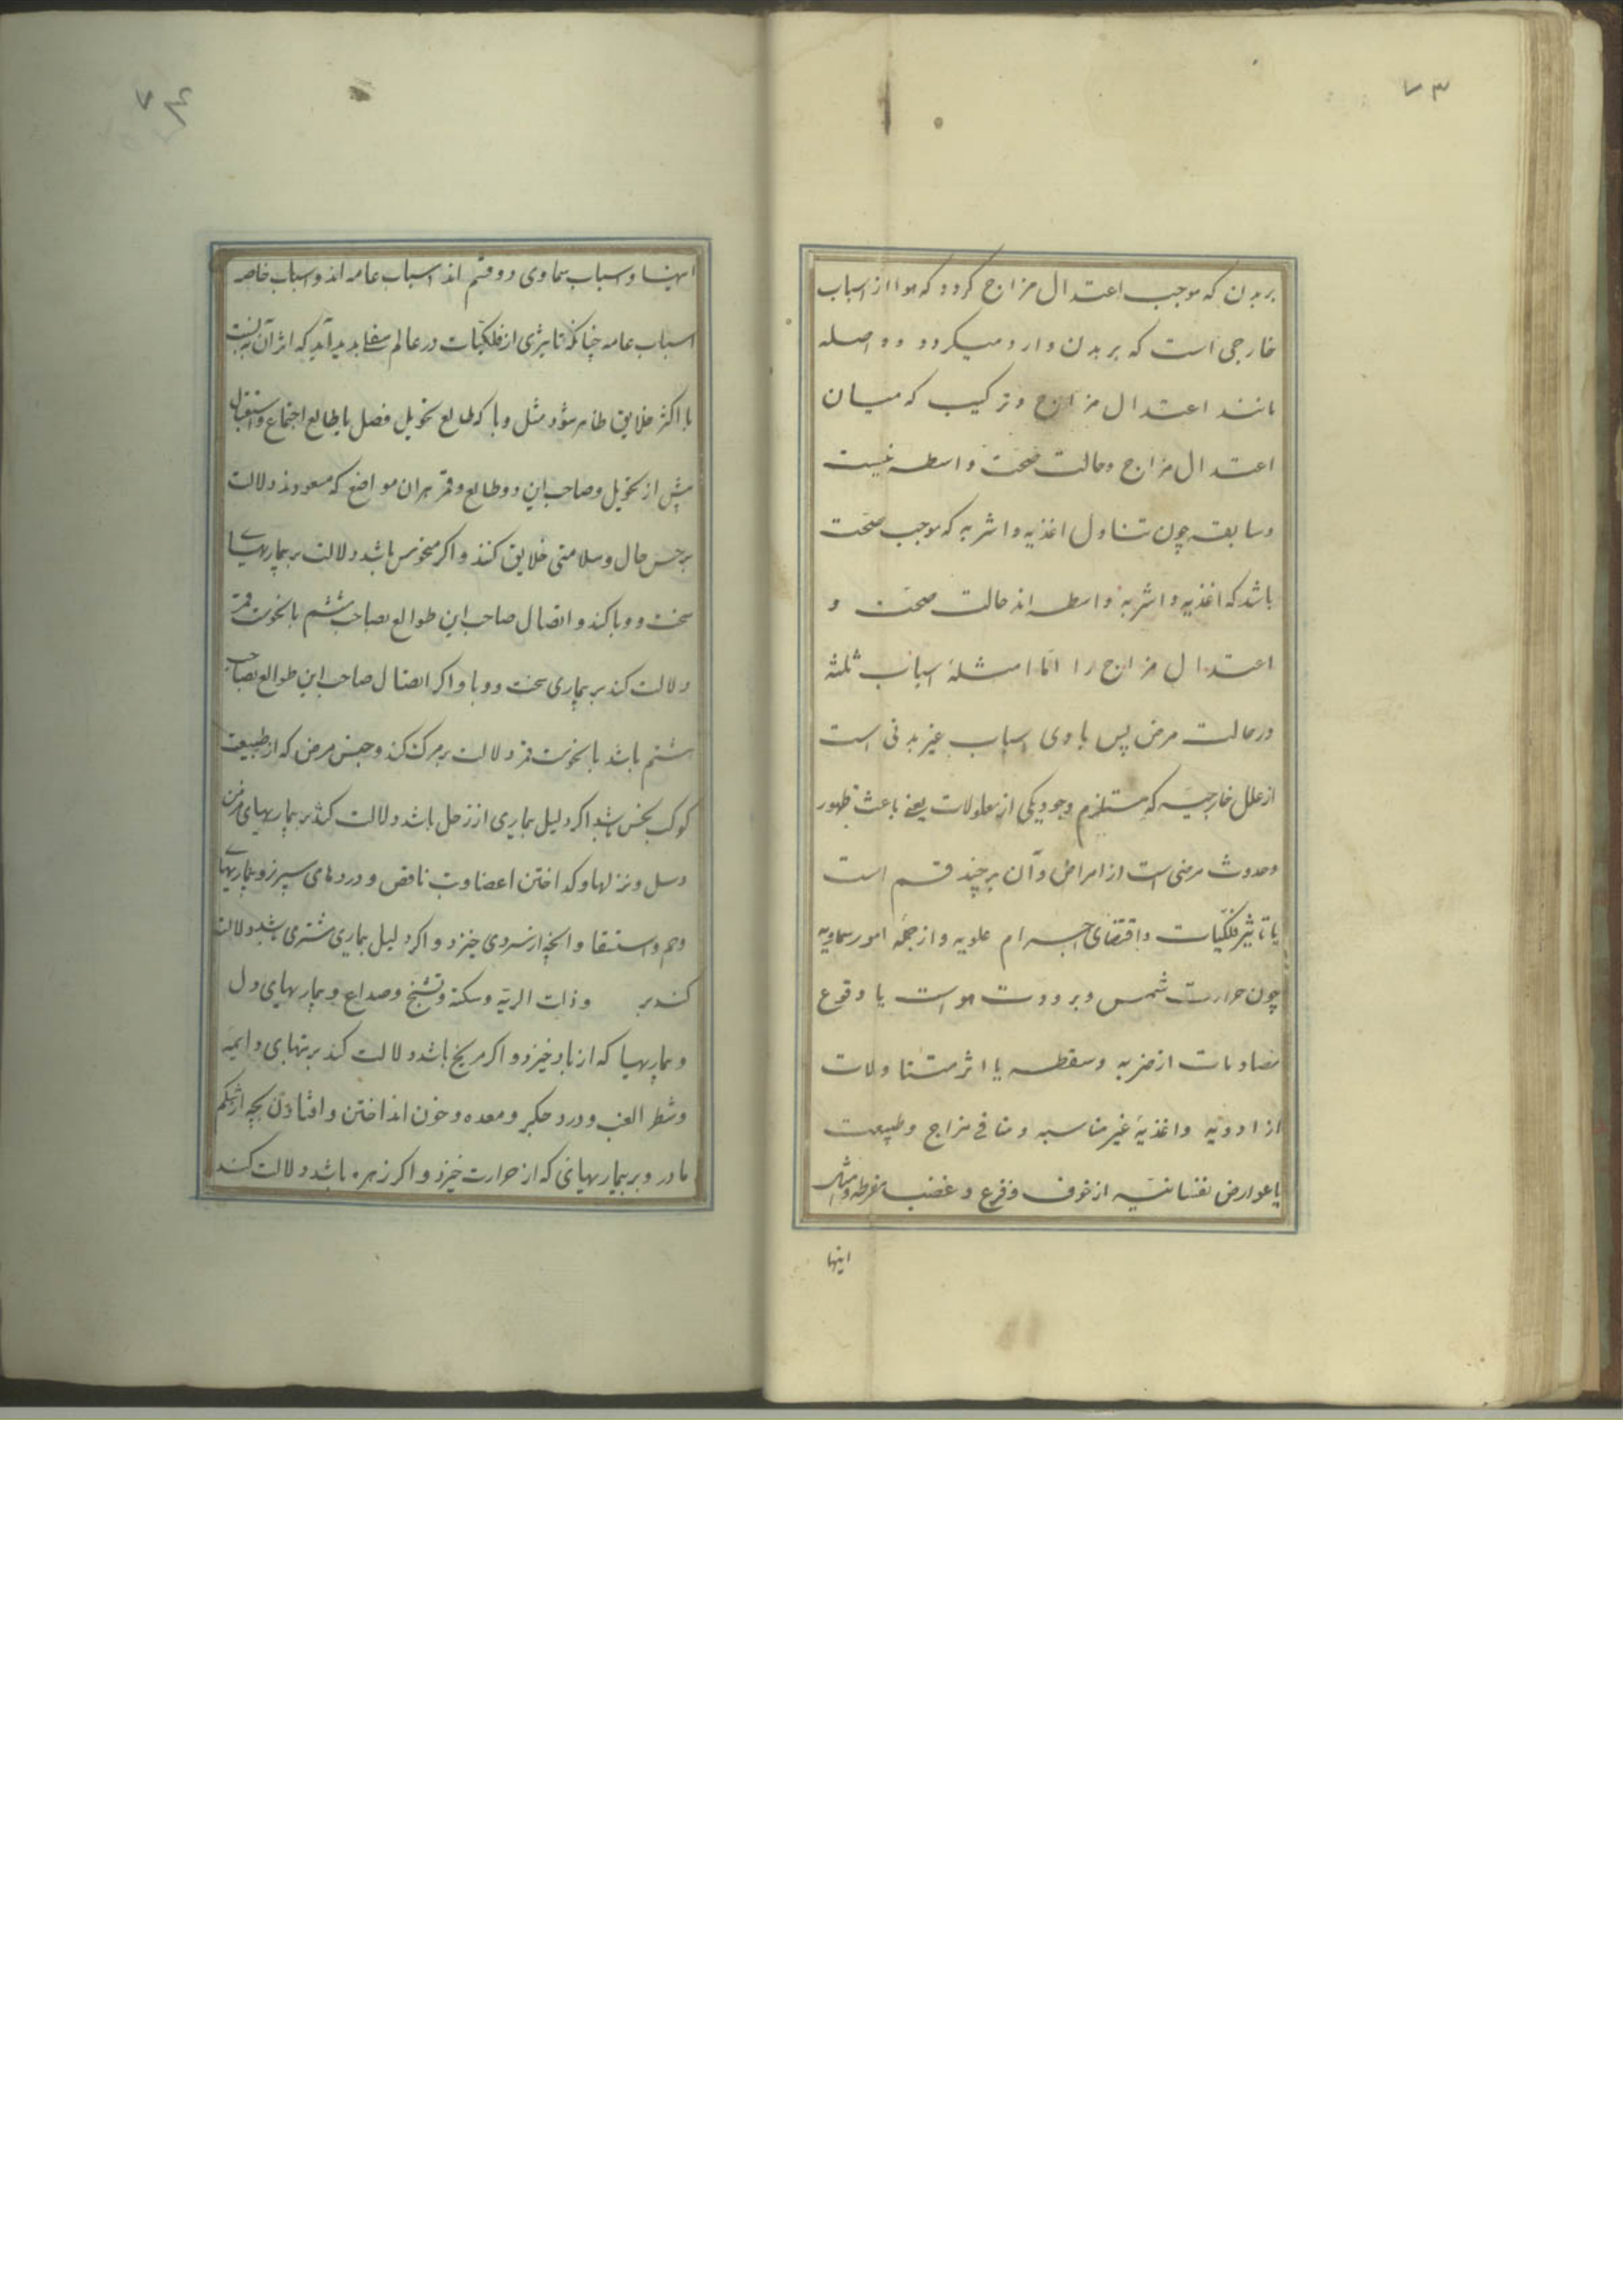 ۷۳
بر بدن که موجب اعتدال مزاج کردد که هوا از اسباب
خارجی است که بر بدن وارد میکردد و واصله
مانند اعتدال مزاج و ترکیب که میان
اعتدال مزاج و حالت صحّت واسطه نیست
و سابقه چون تناول اغذیه و اشربه که موجب صحّت
باشد که اغذیه و اشربه واسطه اند حالت صحّت و
اعتدال مزاج را امّا امثلهٔ اسباب ثلثه
در حالت مرض پس بادی اسباب غیر بدنی است
از علل خارجیه که مستلزم وجود یکی از معلولات یعنی باعث ظهور
و حدوث مرضی است از امراض و آن بر چند قسم است
یا تاثیر فلکیّات و اقتضای اجرام علویه و از جمله امور سماویه
چون حرارت شمس و برودت هواست یا وقوع
مصادمات از ضربه و سقطه یا اثر متناولات
از ادویه و اغذیهٔ غیر مناسبه و منافی مزاج و طبیعت
یا عوارض نفسانیّه از خوف و فزع و غضب مفرطه و امثال
اینها
۷۴
اینها و اسباب سماوی دو قسم اند اسباب عامه اند و اسباب خاصه
اسباب عامه چنانکه تاثیری از فلکیّات در عالم سفلی پدید آید که اثر آن نسبت
با اکثر خلایق ظاهر شود مثل وبا که طالع تحویل فصل یا طالع اجتماع و استقبال
پیش از تحویل و صاحب این دو طالع و قمر بران مواضع که مسعودند دلالت
بر حسن حال و سلامتی خلایق کنند و اکر منحوس باشد دلالت بر بیماریهای
سخت و وبا کند و اتصال صاحب این طوالع بصاحب ششم با نحوست قمر
دلالت کند بر بیماری سخت و وبا و اکر اتصال صاحب این طوالع بصاحب
هشتم باشد با نحوست قمر دلالت بر مرک کند و جنس مرض که از طبیعت
کوکب نحس باشد اکر دلیل بیماری از زحل باشد دلالت کند بر بیماریهای مزمن
و سل و نزلها و کداختن اعضا و تب ناقص و دردهای سپرز و بیماریهای
وهم و استسقا و انچه از سردی خیزد و اکر دلیل بیماری مشتری باشد دلالت
کند بر و ذات الریّه و سکته و تشنّج و صداع و بیماریهای دل
و بیماریها که از باد خیزد و اکر مریخ باشد دلالت کند بر تبهای دایمیه
و شطر الغب و درد جکر و معده و خون انداختن و افتادن بچه از شکم
مادر و بر بیماریهائی که از حرارت خیزد و اکر زهره باشد دلالت کند